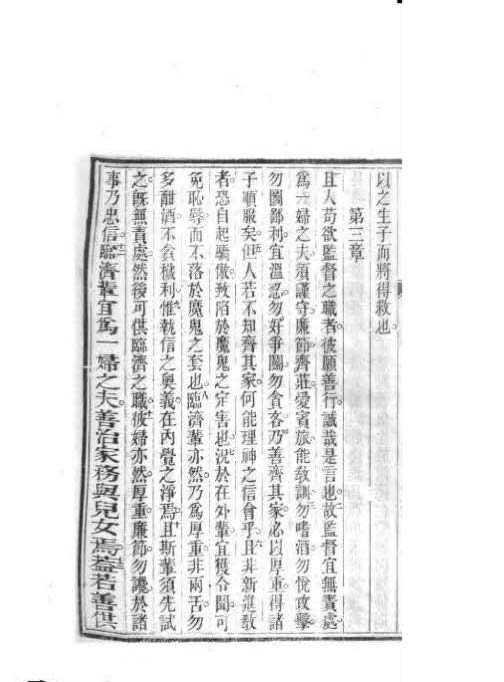 以之生子而將得救也
第三章
且人苟欲監督之職者彼願善行誠哉是言也故監督宜無責處
為一婦之夫須謹守廉節齊莊愛賓旅能敎訓勿嗜酒勿悅攻擊
勿圖鄙利宜溫忍勿好爭鬭勿貪吝乃善齊其家必以厚重得諸
子順服矣但人若不知齊其家何能理神之信會乎且非新進敎
者恐自起驕傲致陷於魔鬼之定害也况於在外輩宜獲令聞可
免恥辱而不落於魔鬼之套也臨濟輩亦然乃為厚重非兩舌勿
多酣酒不貪穢利惟執信之奧義在內覺之淨焉且斯輩須先試
之旣無責處然後可供臨濟之職彼婦亦然厚重廉節勿讒於諸
事乃忠信臨濟輩宜為一婦之夫善治家務與兒女焉蓋若善供